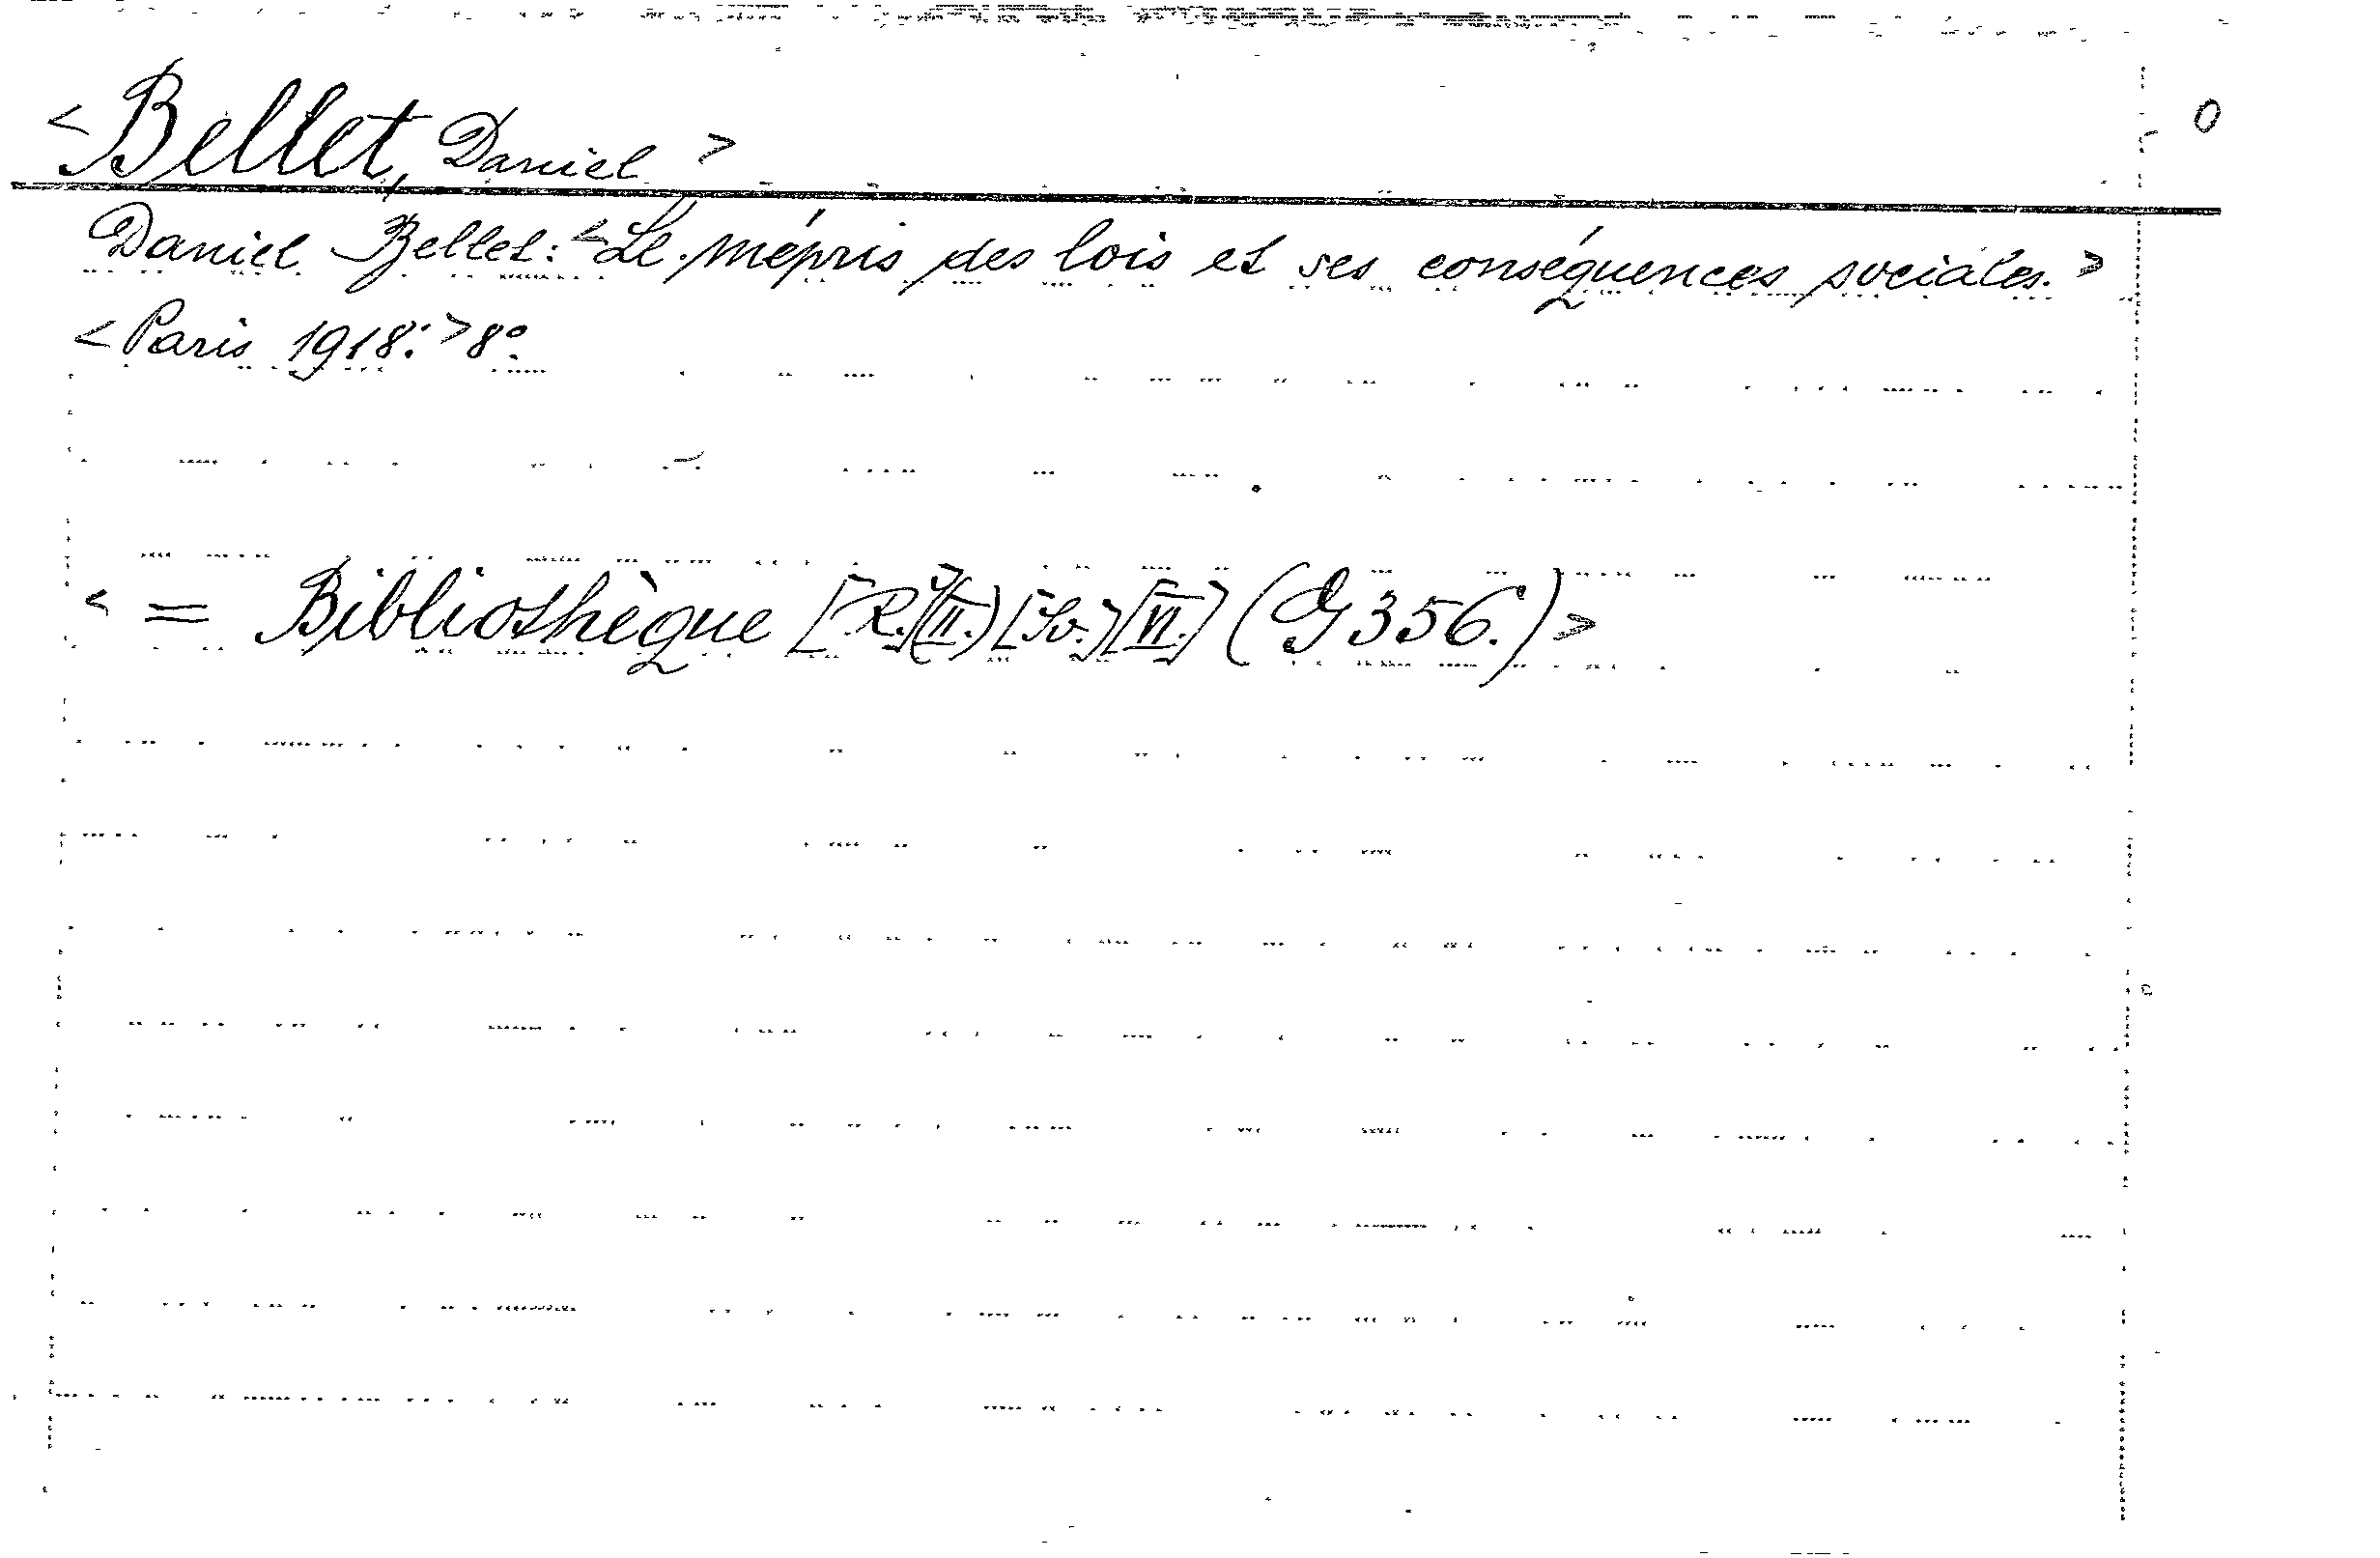 <Bellet, Daniel> 0
Daniel Bellet: <Le mépris des lois et ses conséquences sociales.>
<Paris 1918:>8°.
<= Bibliothèque [R.](II.) [So.] [VI.] (G 356.)>